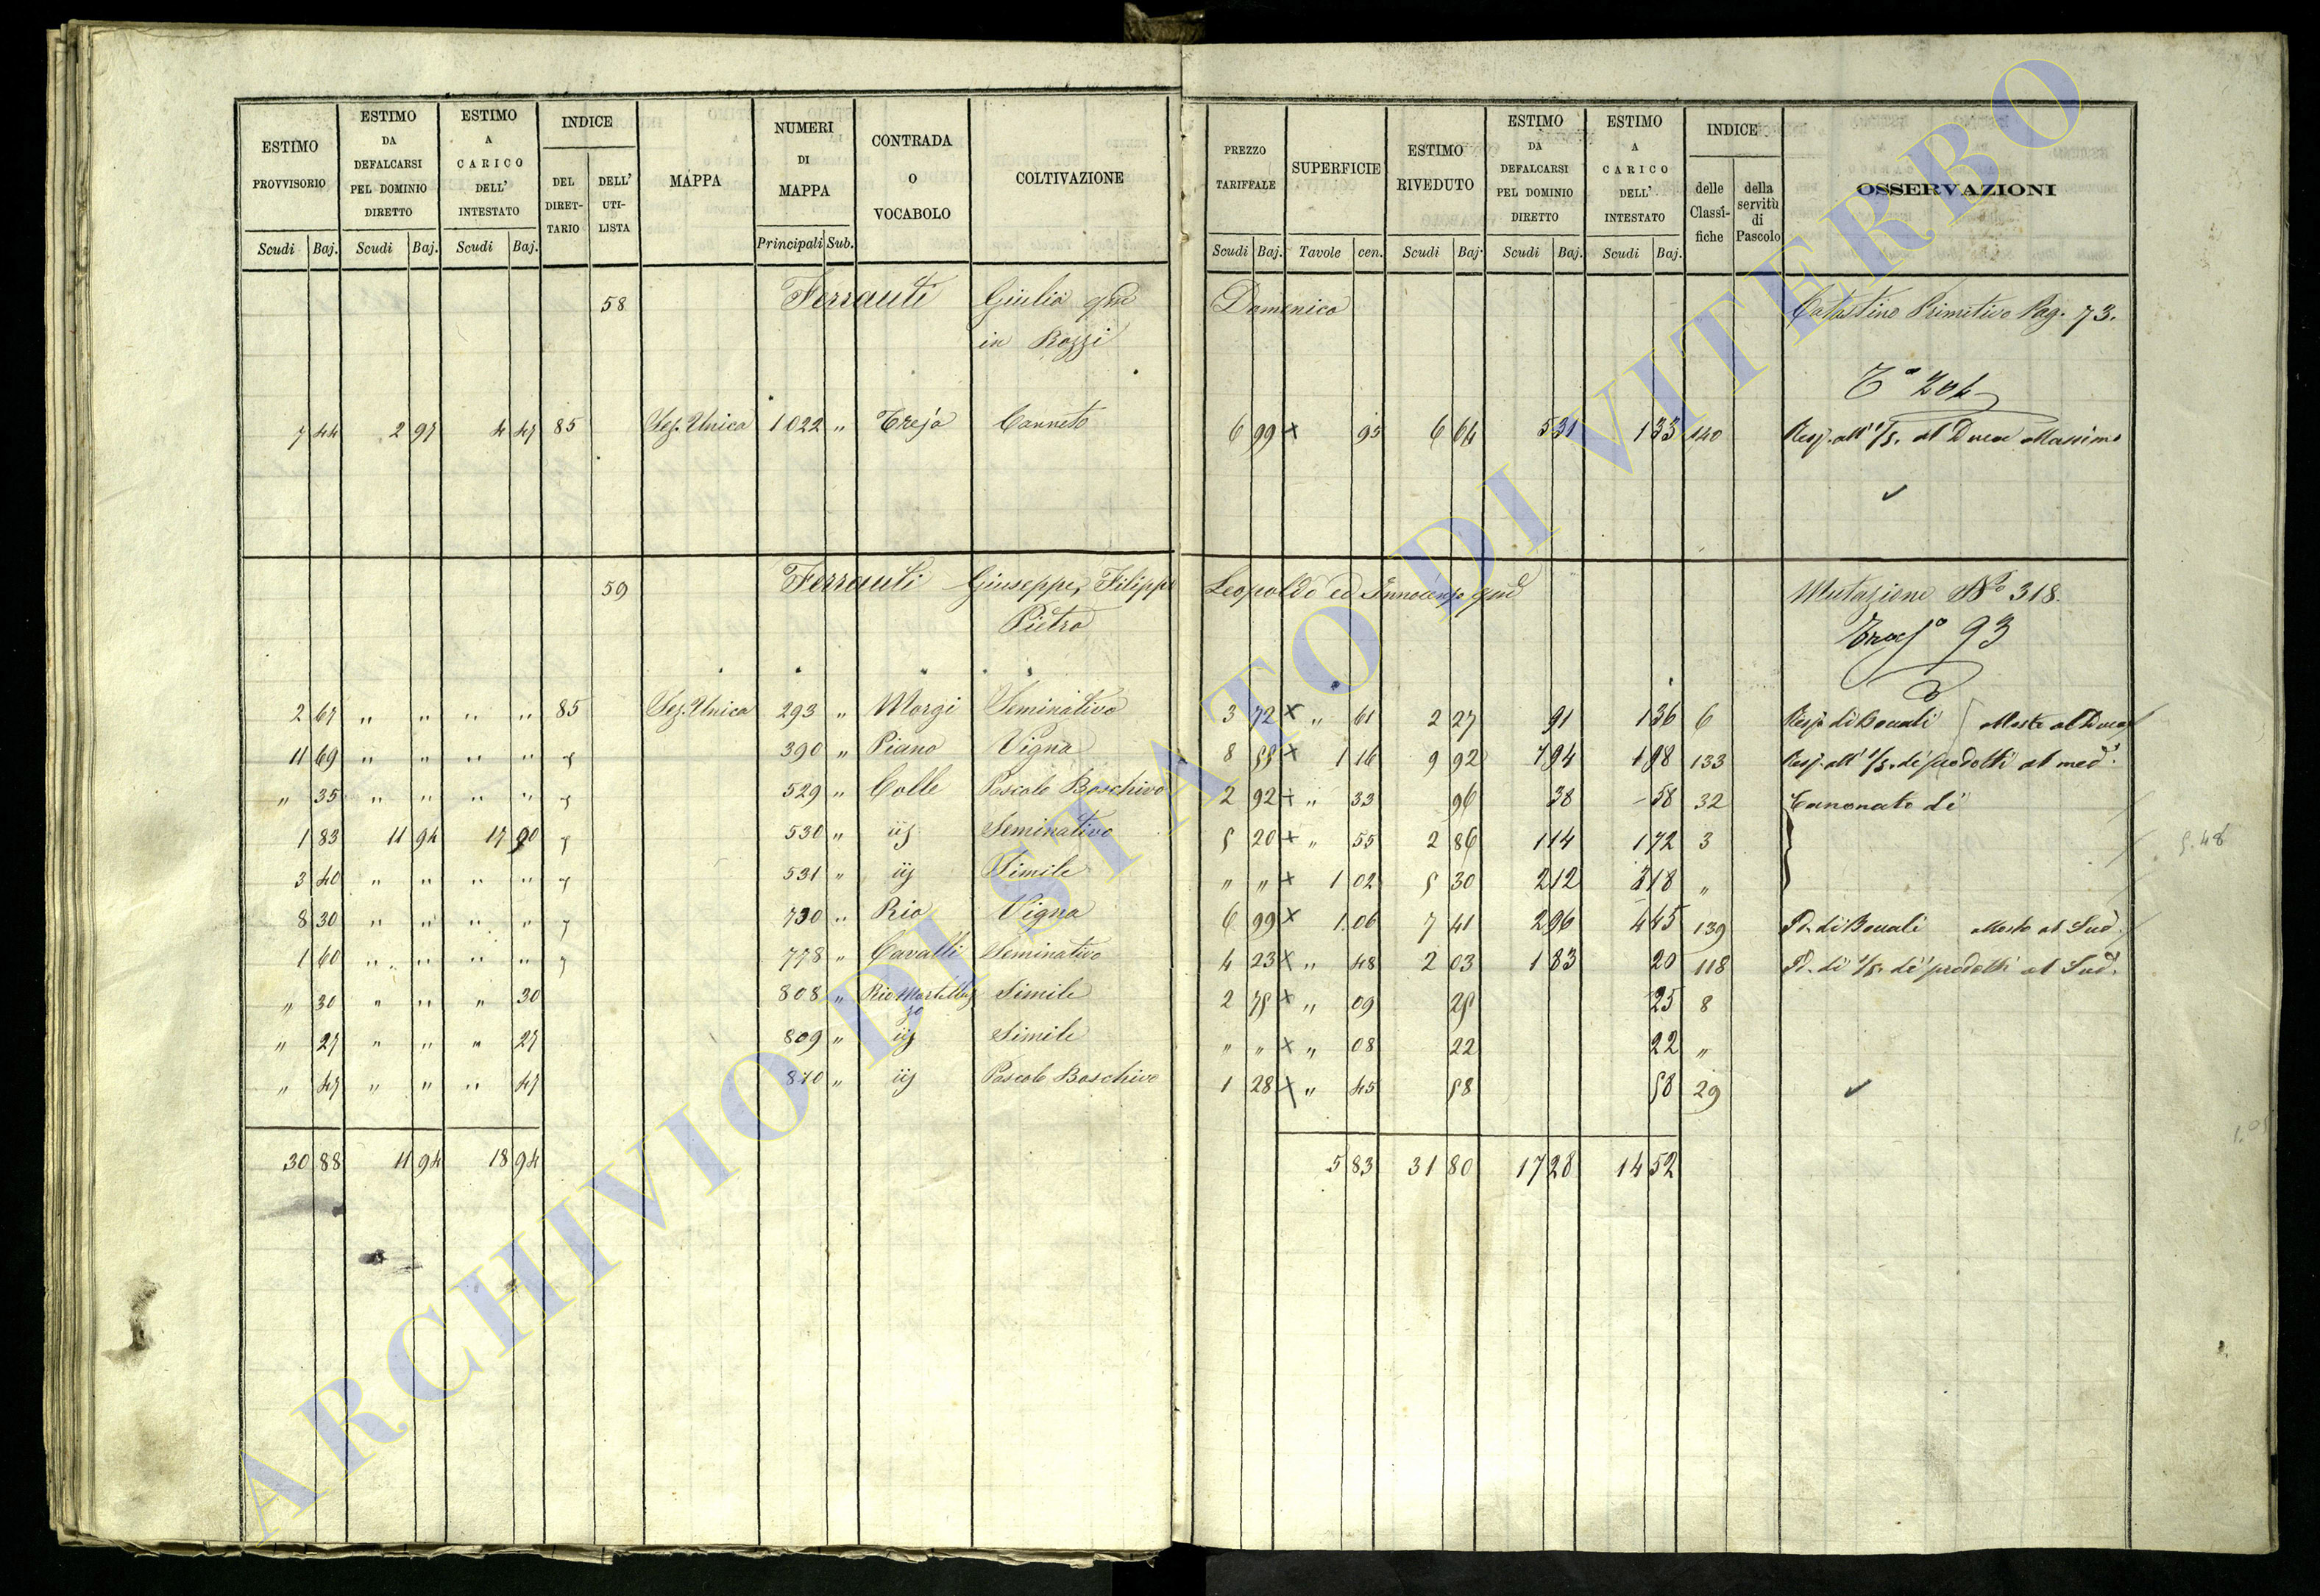 ESTIMO PROVVISORIO | ESTIMO DA DEFALCARSI PEL DOMINIO DIRETTO | ESTIMO A CARICO DELL' INTESTATO | INDICE | MAPPA | NUMERI DI MAPPA | CONTRADA O VOCABOLO | COLTIVAZIONE | PREZZO TARIFFALE | SUPERFICIE | ESTIMO RIVEDUTO | ESTIMO DA DEFALCARSI PEL DOMINIO DIRETTO | ESTIMO A CARICO DELL' INTESTATO | INDICE | OSSERVAZIONI
DEL DIRETTARIO | DELL' UTILISTA | delle Classifiche | della servitù di Pascolo
Scudi Baj. | Scudi Baj. | Scudi Baj. | Principali Sub. | Scudi Baj. | Tavole cen. | Scudi Baj. | Scudi Baj. | Scudi Baj.
58 Ferrauti Giulia qm Domenico Catastino Primitivo Pag. 73.
in Rozzi
T° 204
7 44 2 97 4 47 85 Sez. Unica 1022 " Treja Canneto 6 99 x 95 6 64 5 31 1 33 140 Resp. all' 1/5. al Duca Massimo
59 Ferrauti Giuseppe, Filippo Leopoldo ed Innocenzo qm Mutazione N° 318.
Pietro
93
2 67 " " " " 85 Sez. Unica 293 " Morgi Seminativo 3 72 x " 61 2 27 91 1 36 6 Resp. di
11 69 " " " " 390 " Piano Vigna 8 55 x 1 16 9 92 7 94 1 98 133 Resp. all' 1/5. di prodotti al med°.
" 35 " " " " 529 " Colle Pascolo Boschivo 2 92 x " 33 96 38 58 32 Canonato di
1 83 11 94 17 90 530 " iij Seminativo 5 20 x " 55 2 86 1 14 1 72 3
3 40 " " " " 531 " iij Simile " " x 1 02 5 30 2 12 3 18 "
8 30 " " " " 730 " Rio Vigna 6 99 x 1 06 7 41 2 96 4 45 139
1 60 " " " " 778 " Cavalli Seminativo 4 23 x " 48 2 03 1 83 20 118 Id. di 1/5. di prodotti al Sud°.
" 30 " " " 30 808 " Rio Simile 2 75 x " 09 25 25 8
" 27 " " " 27 809 " iij Simile " " x " 08 22 22 "
" 47 " " " 47 810 " iij Pascolo Boschivo 1 28 x " 45 58 58 29
30 88 11 94 18 94 5 83 31 80 17 28 14 52
5.48
ARCHIVIO DI STATO DI VITERBO